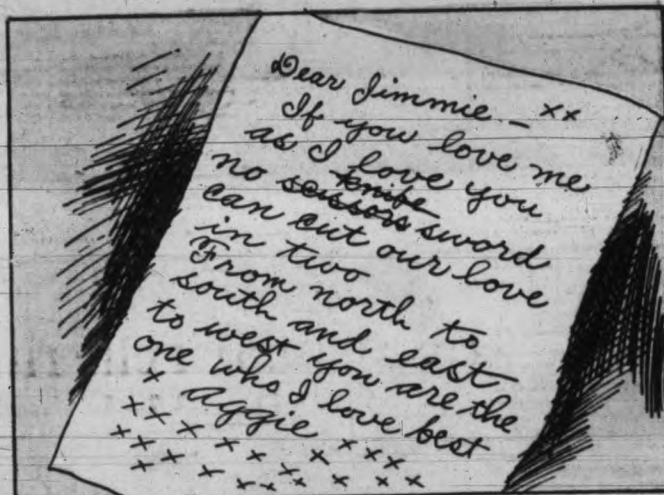 Dear Jimmie — xx
If you love me
as I love you
knife
no scissors sword
can cut our love
in two
From north to
south and east
to west you are the
one who I love best
x Aggie x x x x
x x x x x x x x x
x x x x x x x x